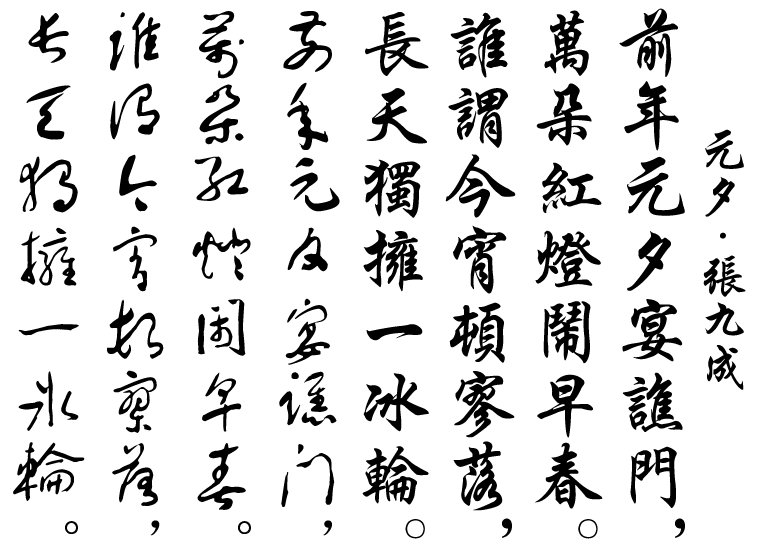 元夕·張九成
前年元夕宴譙門，
萬朵紅燈鬧早春。
誰謂今宵頓寥落，
長天獨擁一冰輪。
前年元夕宴譙門，
萬朵紅燈鬧早春。
誰謂今宵頓寥落，
長天獨擁一冰輪。